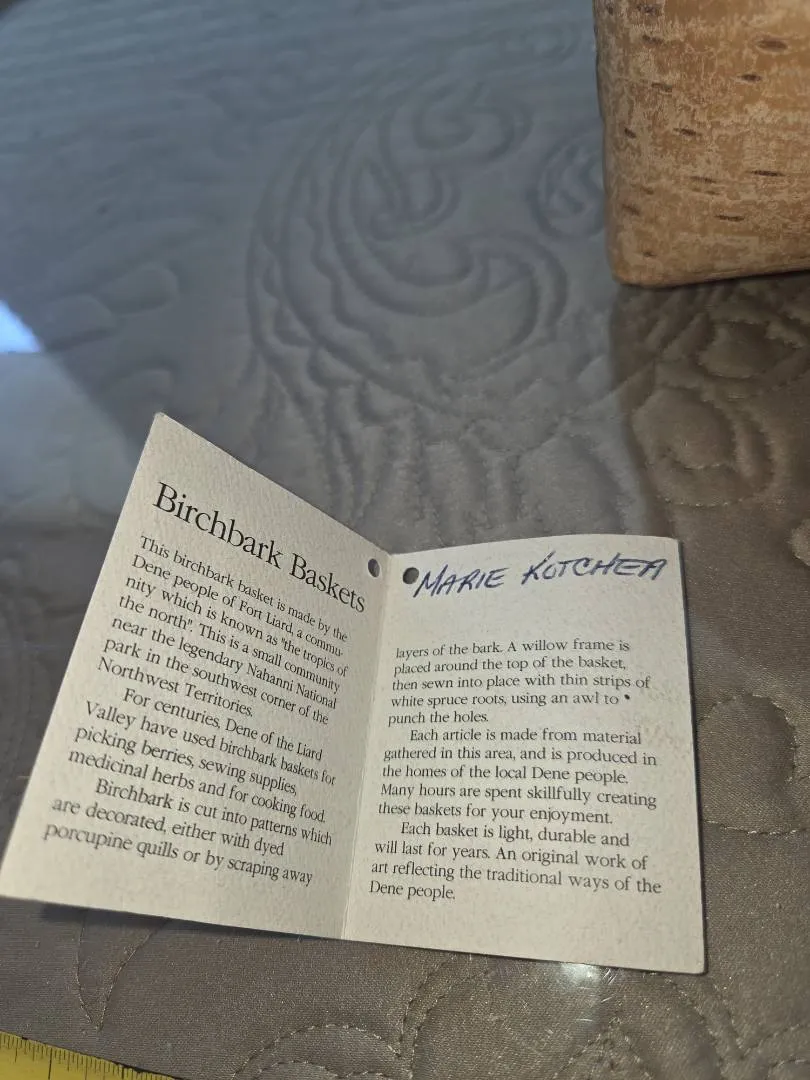 Birchbark Baskets
This birchbark basket is made by the
Dene people of Fort Liard, a commu-
nity which is known as "the tropics of
the north". This is a small community
near the legendary Nahanni National
park in the southwest corner of the
Northwest Territories.
For centuries, Dene of the Liard
Valley have used birchbark baskets for
picking berries, sewing supplies,
medicinal herbs and for cooking food.
Birchbark is cut into patterns which
are decorated, either with dyed
porcupine quills or by scraping away
MARIE KOTCHEA
layers of the bark. A willow frame is
placed around the top of the basket,
then sewn into place with thin strips of
white spruce roots, using an awl to
punch the holes.
Each article is made from material
gathered in this area, and is produced in
the homes of the local Dene people.
Many hours are spent skillfully creating
these baskets for your enjoyment.
Each basket is light, durable and
will last for years. An original work of
art reflecting the traditional ways of the
Dene people.